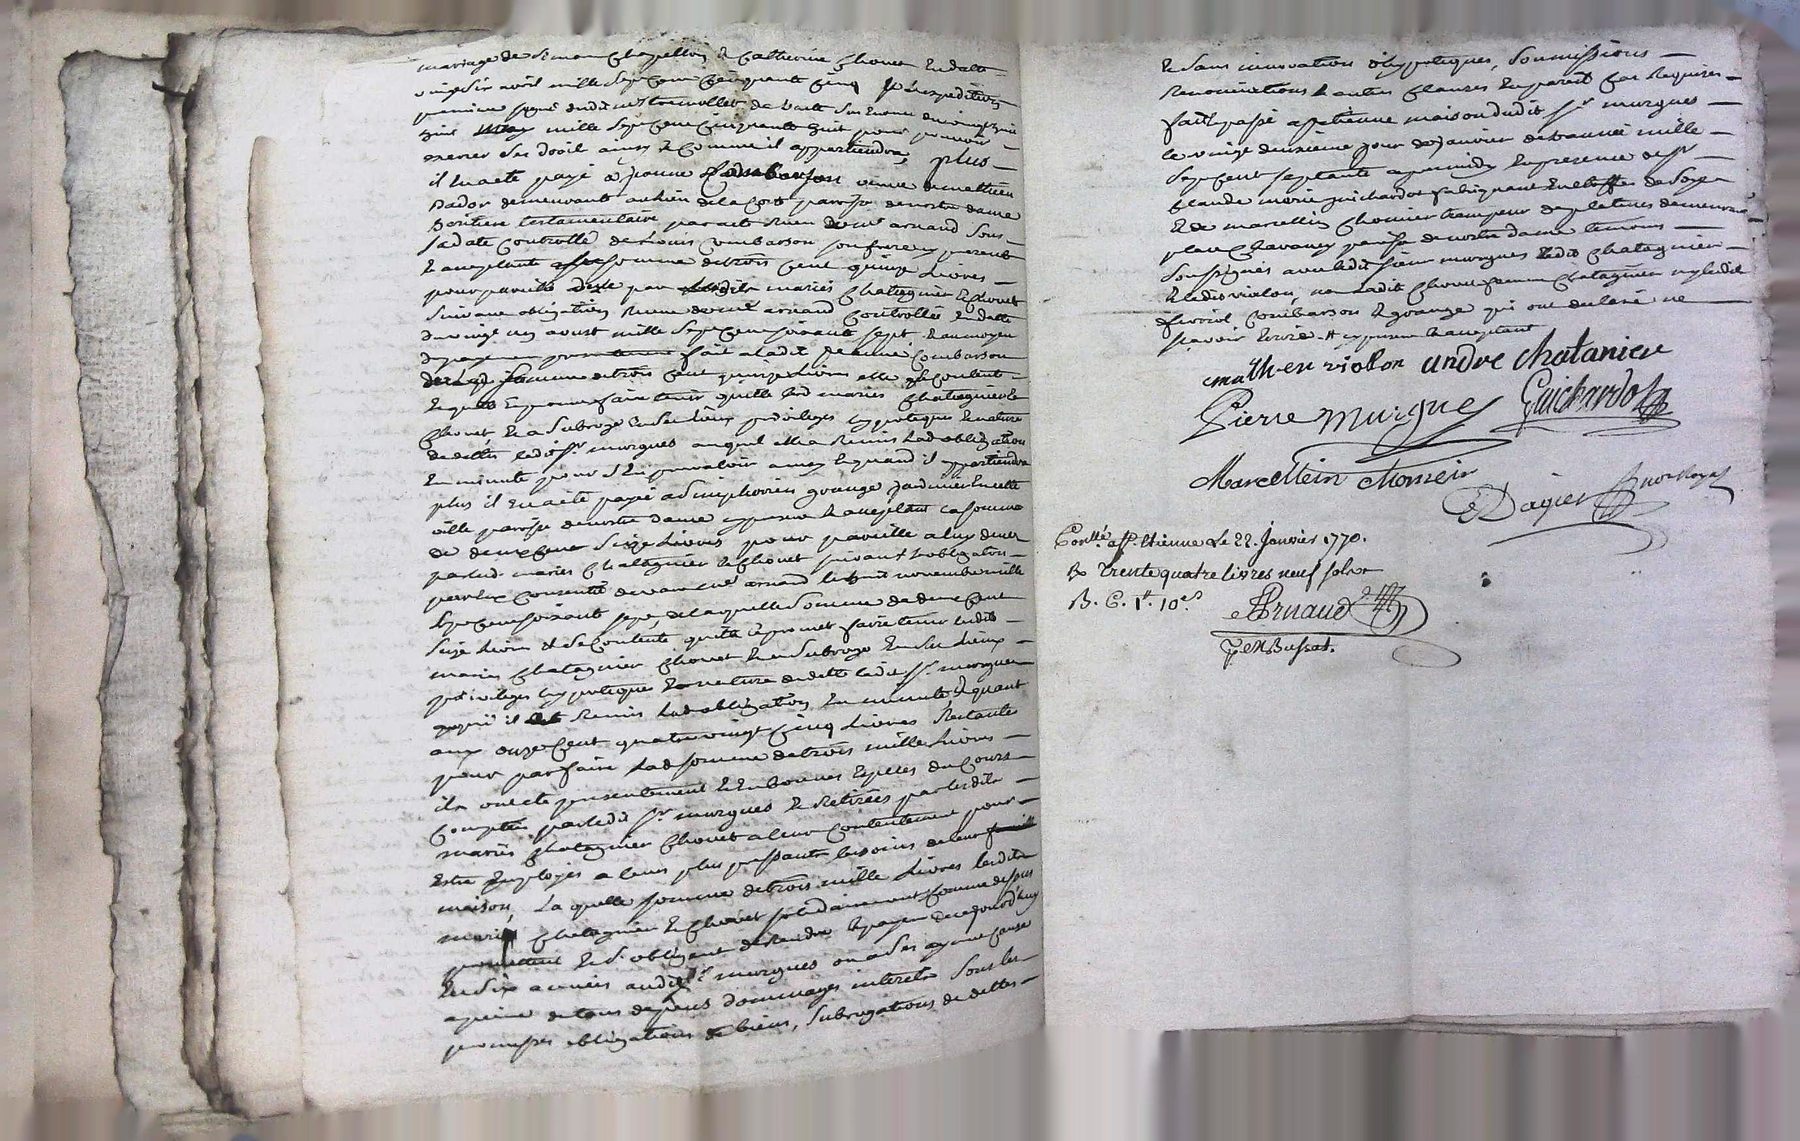 mariage de Simon Chapellon & Catherine Chovet En datte
vingt six avril mille Sept Cent Cinquante Cinq
mille Sept Cent Cinquante huit pour
exercer Ses droit ainsy & Comme il appartiendra, plus
il En a été payé a Jeanne Combarson veuve de mathieu
Bador demeurant au lieu de la Cott paroisse de notre dame
heritiere testamentaire par acte Reçu de me arnaud Sous
Sa date Controllé de Louis Combarson Son frere icy presente
& acceptante somme de trois Cent quinze Livres
pour pareille par mariés Chatagnier & Chovet
Suivant obligation Reçue de me arnaud Controllée En datte
du vingt un aoust mille Sept Cent soixante Sept, & au moyen
fait a ladit Jeanne Combarson
somme de trois Cent quinze Livres elle Se Contente
En quitte & promet faire tenir quitte lesd mariés Chatagnier &
Chovet & a Subrogé En Ses Lieux privileges hypotheques & nature
de dettes ledit Sr. murgues auquel elle a Remis Lad obligation
En minute pour S'En prevaloir ainsy & quand il appartiendra
plus il En a été payé a Simphorien grange Jardinier En cette
ville paroisse de notre dame icy present & acceptant la somme
de deux Cent Seize Livres pour pareille a luy deue
par lesd. mariés Chatagnier & Chovet suivant L'obligation
par Eux Consentie devant me arnaud le huit novembre mille
Sept Cent soixante Sept, de laquelle Somme de deux Cent
Seize Livres il Se Contente quitte & promet faire tenir lesdits
mariés Chatagnier Chovet & a Subrogé En Ses Lieux
privileges hypotheques & nature de dette ledit Sr. murgues
auquel il a Remis Lad obligation En minute, & quant
aux onze Cent quatre vingt Cinq Livres Restantes
pour parfaire Lad somme de trois mille Livres
ils ont été presentement & En bonnes Especes du Cours
Comptés par ledit Sr. murgues & Retirées par lesdits
mariés Chatagnier Chovet a leur Contentement pour
Estre Employés a leurs plus pressants besoins de leur
maison, La quelle somme de trois mille Livres lesdits
mariés Chatagnier & Chovet solidairement Comme dessus
promettent & S'obligent de Rendre & payer de ce jourd'huy
En Six années audit Sr. murgues ou a Ses ayant cause
a peine de tous depens dommages interets Sous les
promesses obligations de biens, Subrogations de dettes
& Sans innovation d'hypotheques, Soumissions
Renonciations & autres Clauses
fait & passé a St etienne maison dudit Sr. murgues
le vingt deuxieme Jour de Janvier de l'année mille
Sept Cent Septante apres midy En presence de Sr
Claude marie guichardot fabriquant En Etoffes de Soye
& de marcellin Chomier trempeur de platines demeurant
place Chavanel paroisse de notre dame temoins
Soussignés avec ledit Sieur murgues ledit Chatagnier
& ledit violon, non Ladit Chovet femme Chatagnier ny ledit
Combarson & grange qui ont declaré ne
Sçavoir Ecrire
mathieu violon andré Chatanier
Pierre Murgues Guichardot
Marcellein chomeir
Dagier Nore Royal
Contllé. a St. Etienne Le 22. Janvier 1770.
R. Trente quatre livres neuf sols
B. C. 1lt. 10s.
Arnaud